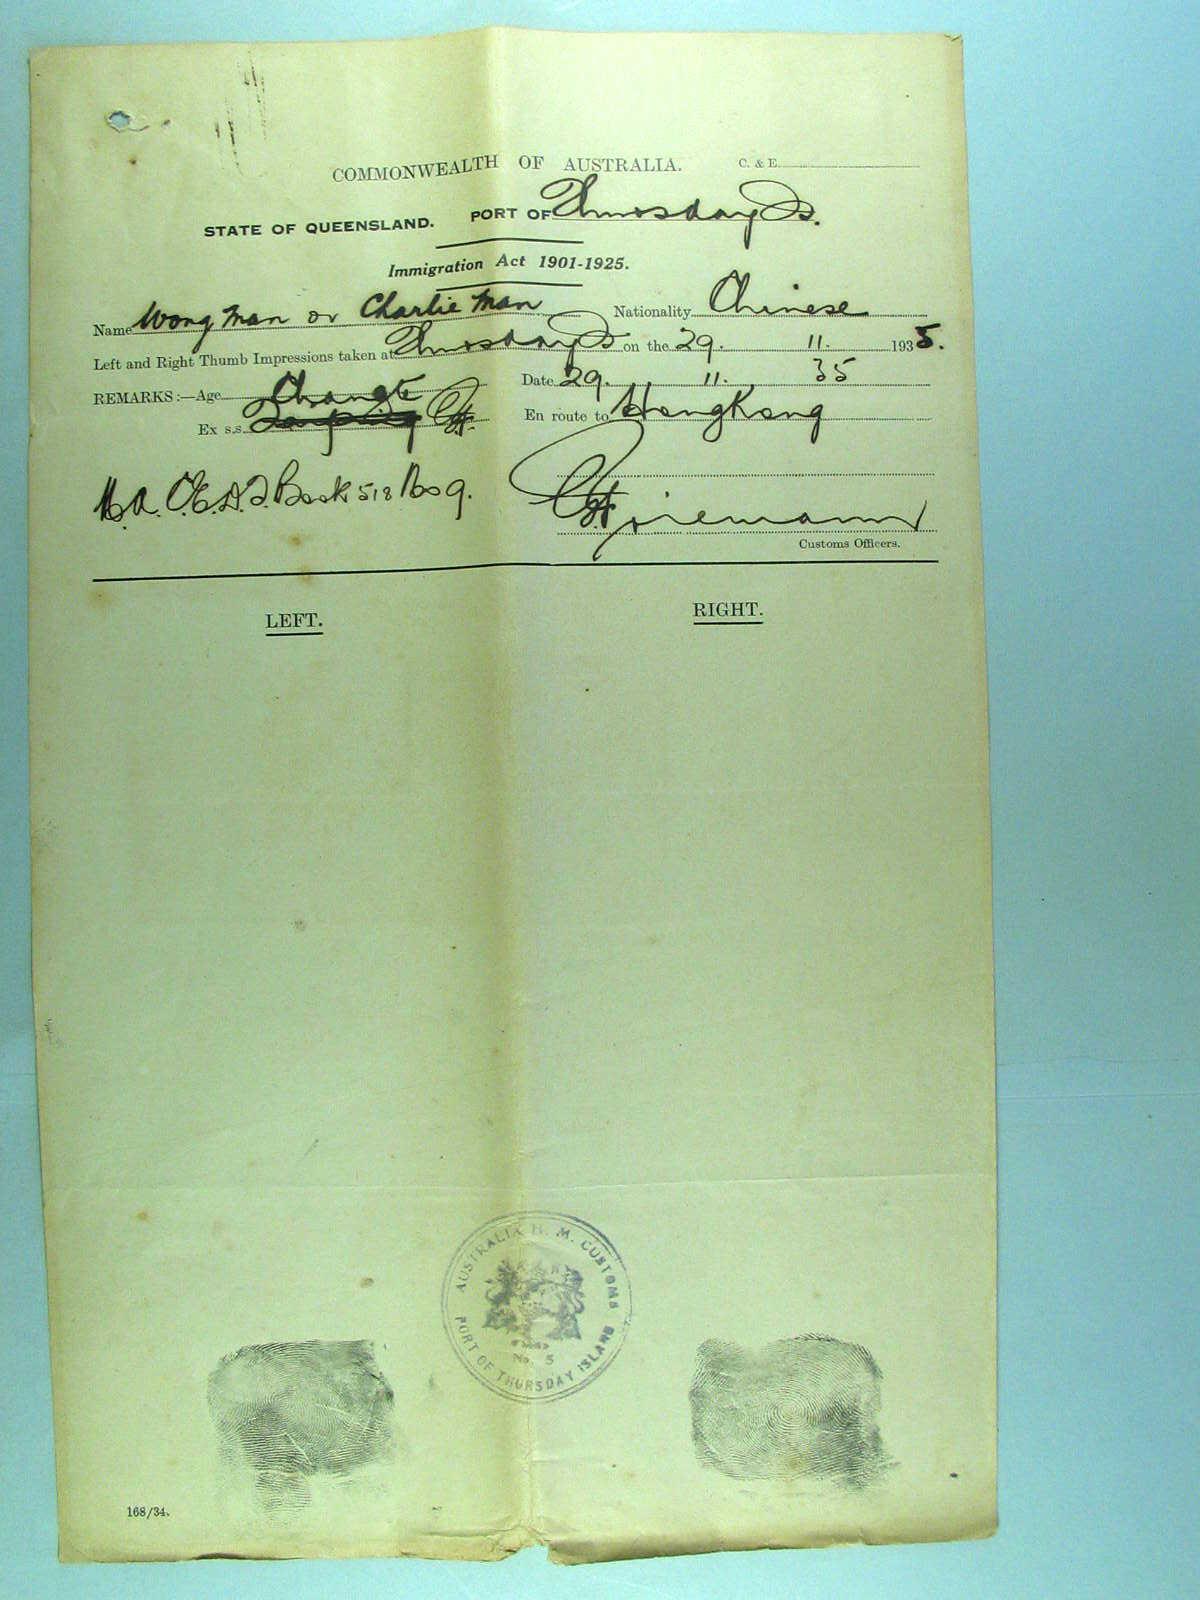 COMMONWEALTH OF AUSTRALIA. C. & E.
STATE OF QUEENSLAND. PORT OF Thursday Is.
Immigration Act 1901-1925.
Name Wong Man or Charlie Man Nationality Chinese
Left and Right Thumb Impressions taken at Thursday Is on the 29. 11. 1935.
REMARKS :—Age Date 29. 11. 35
Changte
Ex s.s. Taiping En route to HongKong
C.E.D.T. Book 518 No 9.
Customs Officers.
LEFT. RIGHT.
AUSTRALIA H. M. CUSTOMS
No. 5
PORT OF THURSDAY ISLAND
168/34.